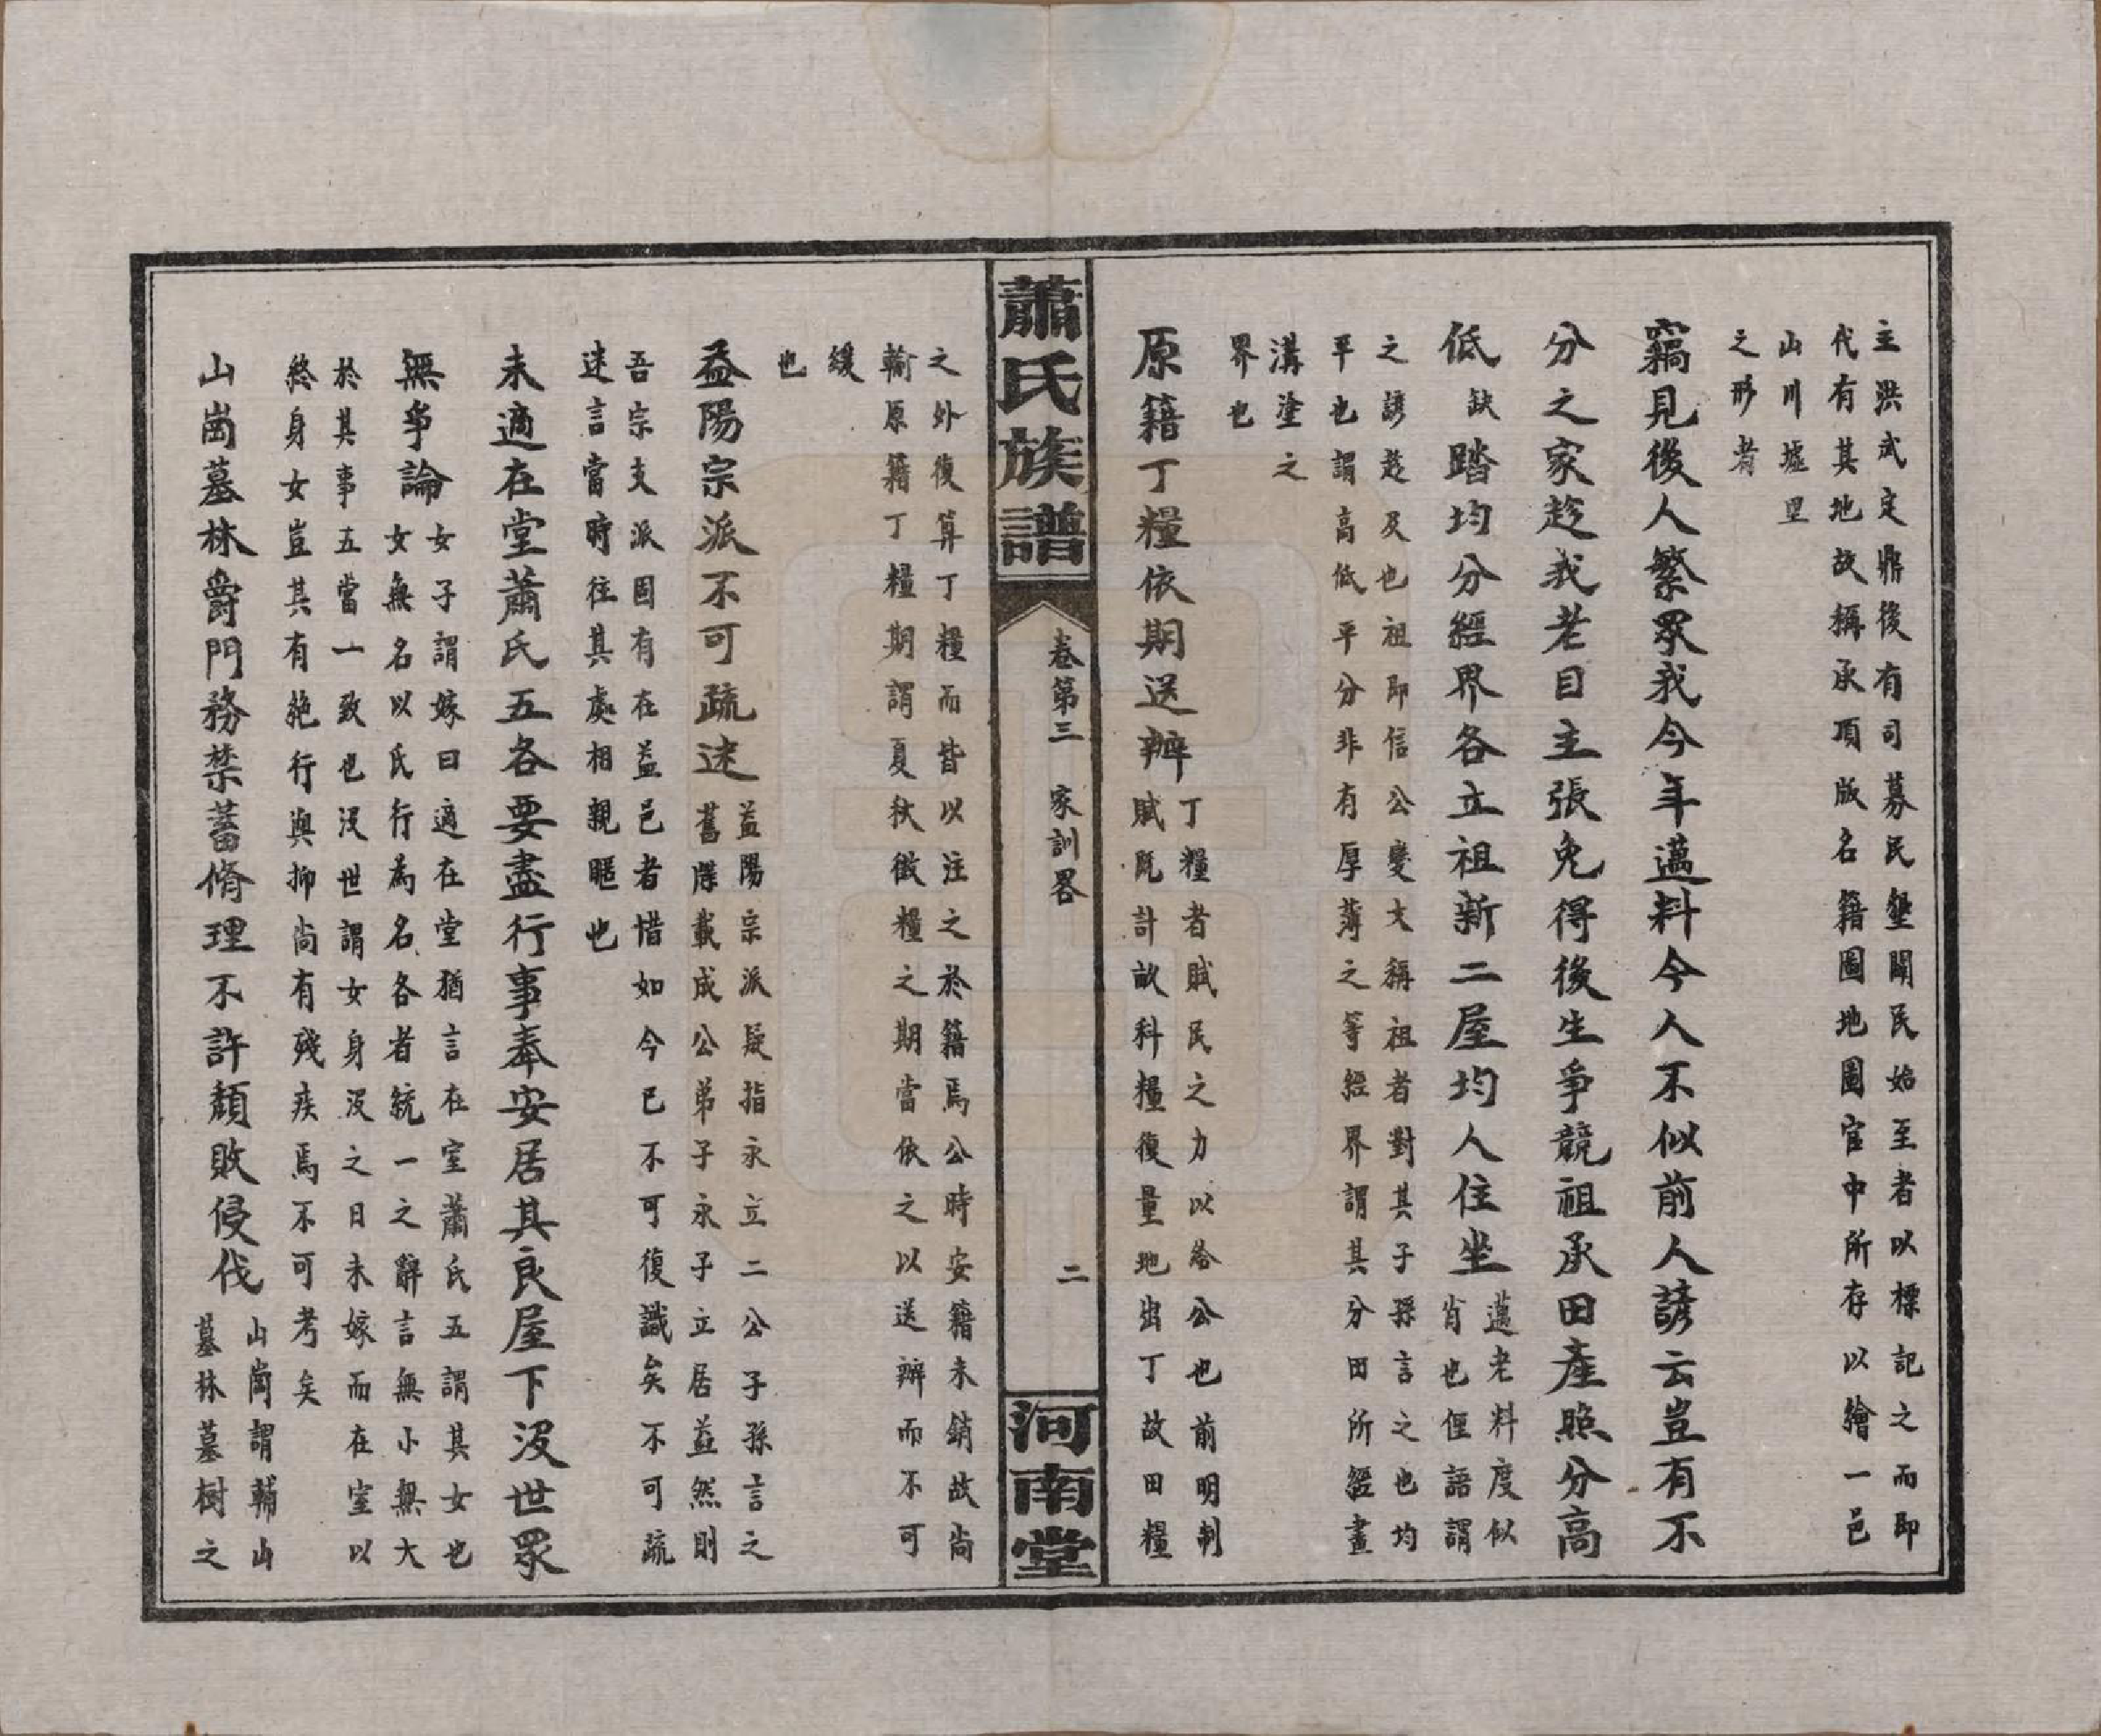 主洪武定鼎後有司募民墾闢民始至者以標記之而即
代有其地故稱承頂版名籍圖地圖官中所存以繪一邑
山川墟里
之形者
竊見後人繁眾我今年邁料今人不似前人諺云豈有不
分之家趁我老目主張免得後生爭競祖承田產照分高
低缺踏均分經界各立祖新二屋均人住坐
邁老料度似
肖也俚語謂
之諺趁及也祖即信公變文稱祖者對其子孫言之也均
平也謂高低平分非有厚薄之等經界謂其分田所經畫
溝塗之
界也
原籍丁糧依期送辦
丁糧者賦民之力以给公也前明制
賦既計畝科糧復量地出丁故田糧
蕭氏族譜
卷第三 家訓畧
二
河南堂
之外復算丁糧而皆以注之於籍焉公時安籍未銷故尚
輸原籍丁糧期謂夏秋徵糧之期當依之以送辦而不可
緩
也
益陽宗派不可疏迷
益陽宗派疑指永立二公子孫言之
舊牒載成公弟子永子立居益然則
吾宗支派固有在益邑者惜如今已不可復識矣不可疏
迷言當時往其處相親暱也
未適在堂蕭氏五各要盡行事奉安居其良屋下沒世眾
無爭論
女子謂嫁曰適在堂猶言在室蕭氏五謂其女也
女無名以氏行為名各者統一之辭言無小無大
於其事五當一致也沒世謂女身沒之日未嫁而在室以
終身女豈其有絶行與抑尚有殘疾焉不可考矣
山崗墓林爵門務禁蓄脩理不許頹敗侵伐
山崗謂輔山
墓林墓樹之